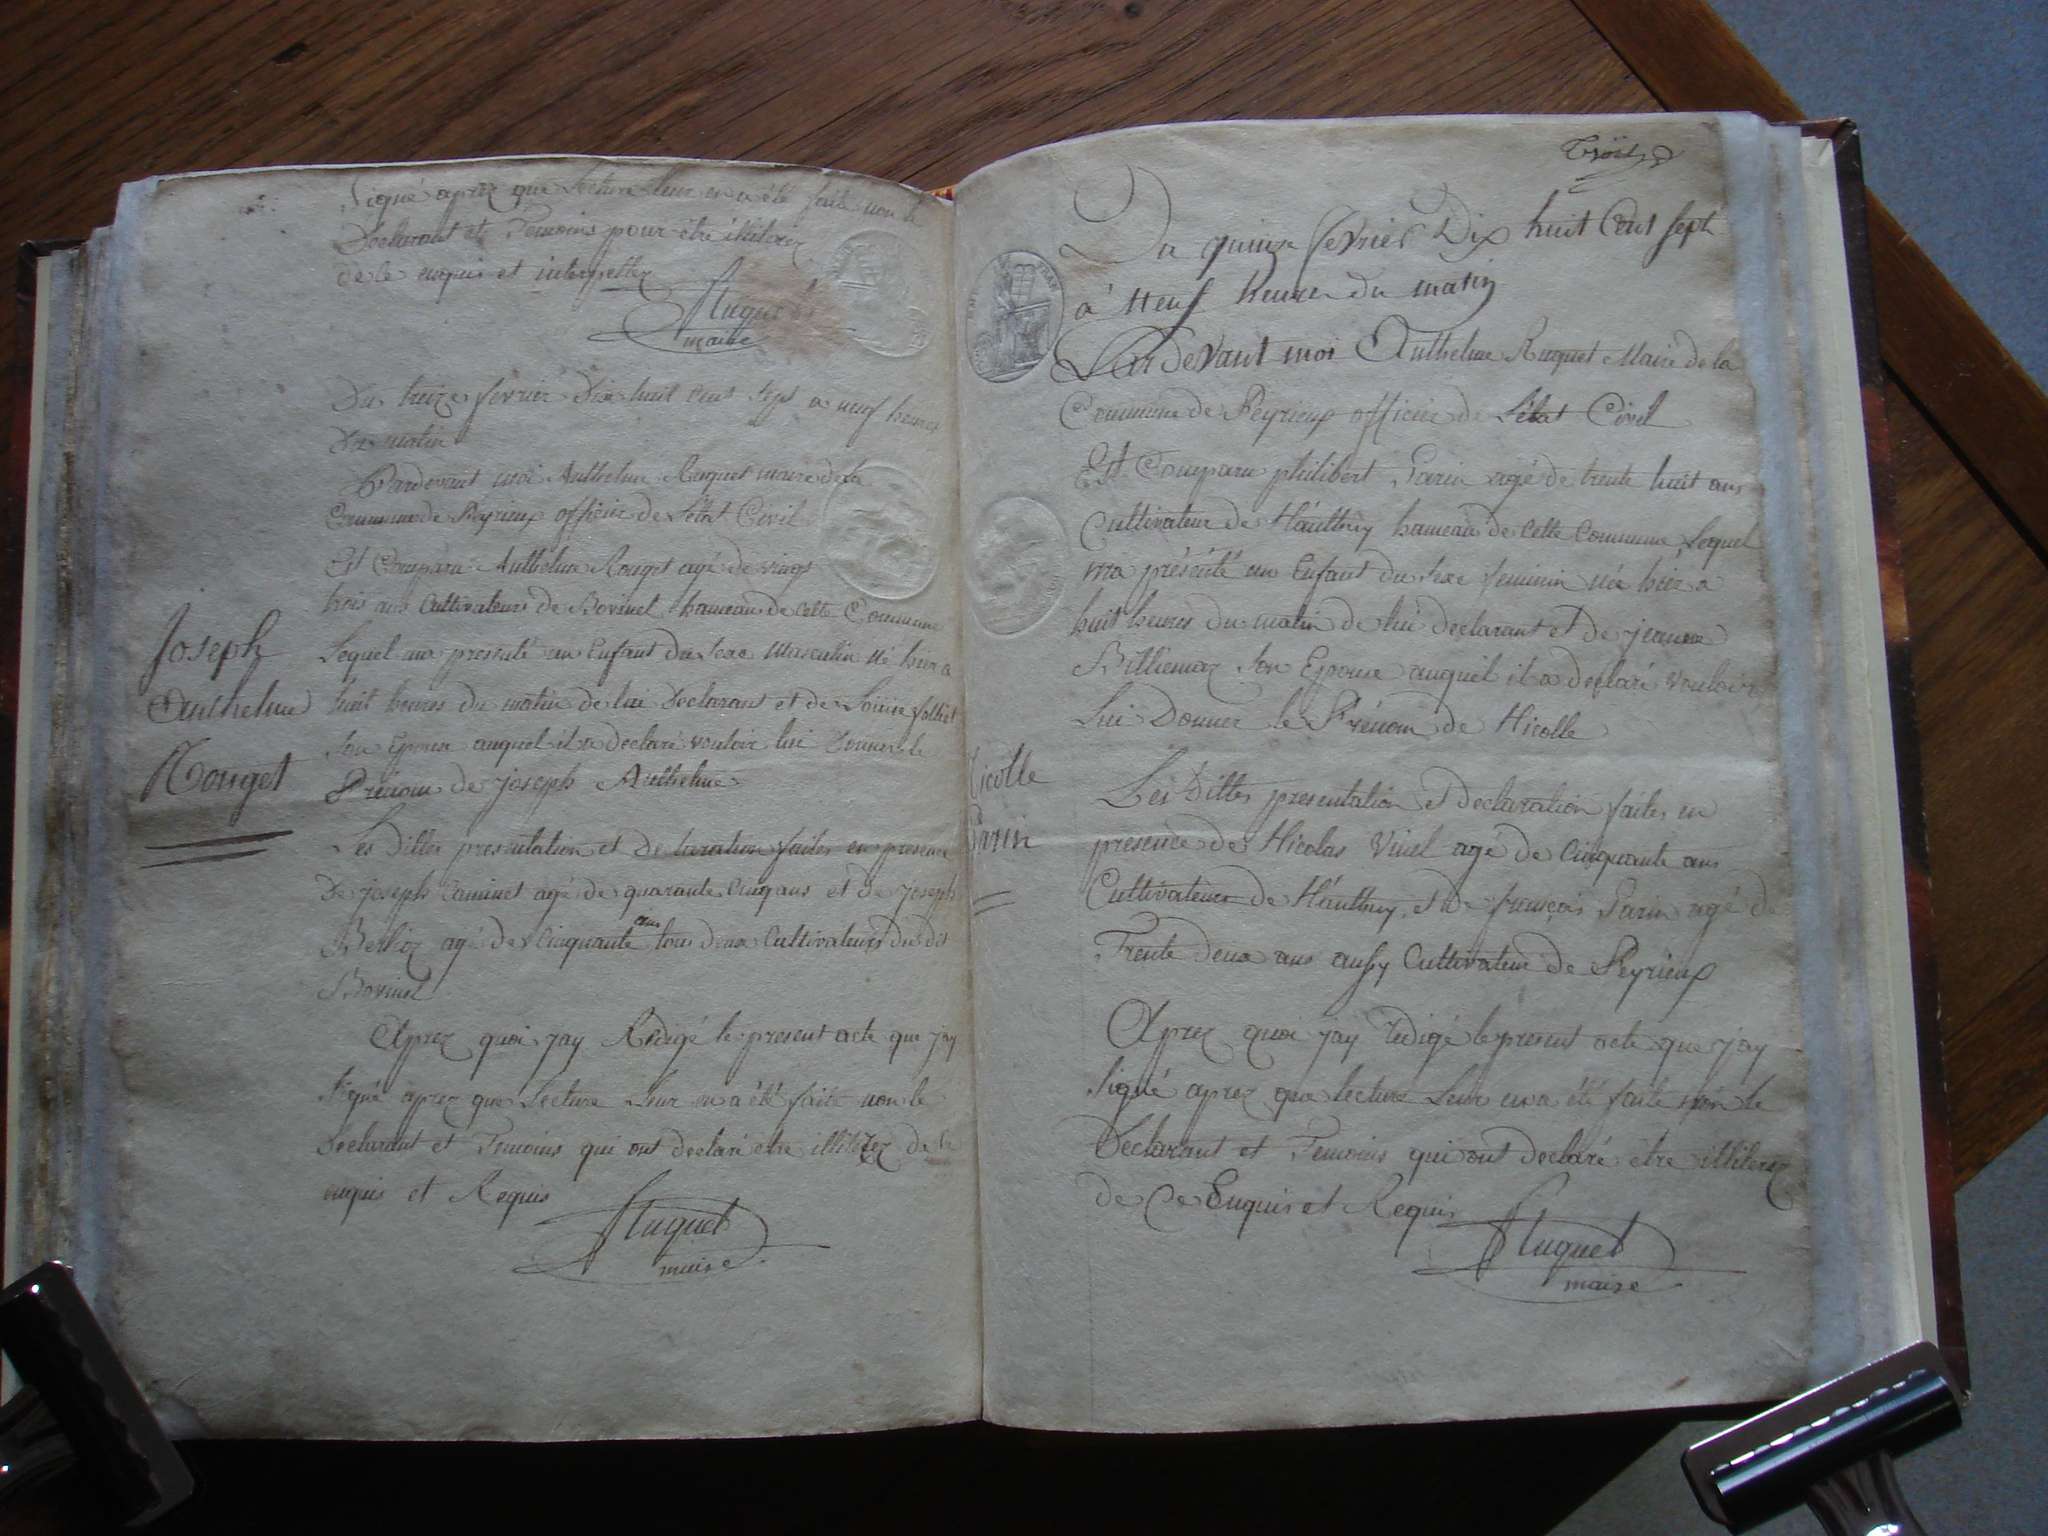 Signé aprez que Lecture Leur en a été faite non le
Declarant et Temoins pour être illiterez
de le enquis et interpellez
Ruquet
maire
Du treize fevrier Dix huit cent sept a neuf heures
Du matin
Pardevant moi Anthelme Ruquet maire de la
Commune de Peyrieux officier de l'état Civil
Est Comparu Anthelme Rouget agé de vingt
trois ans Cultivateur de Bovinel hameau de cette Commune
Lequel ma presenté un Enfant du sexe Masculin né hier a
huit heures du matin de lui Declarant et de Louise
Son Epouse auquel il a declaré vouloir lui Donner le
Prénom de joseph Anthelme
Joseph
Anthelme
Rouget
Les dittes presentation et declaration faites en presence
De joseph Caminet agé de quarante Cinq ans et de joseph
Berlioz agé de Cinquante ans tous deux Cultivateurs du dit
Bovinel
Aprez quoi jay Redigé le present acte que jay
Signé aprez que Lecture Leur en a été faite non le
Declarant et Temoins qui ont declaré etre illiterez de le
enquis et Requis
Ruquet
maire
Trois
Du quinze fevrier Dix huit Cent sept
à Neuf heures du matin
Pardevant moi Anthelme Ruquet Maire de la
Commune de Peyrieux officier de L'état Civil
Est Comparu philibert Parin agé de trente huit ans
Cultivateur de hameau de cette Commune, Lequel
ma présenté un Enfant du sexe feminin née hier a
huit heures du matin de lui declarant et de jeanne
Billiemaz Son Epouse auquel il a declaré vouloir
Lui Donner le Prénom de Nicolle
Nicolle
Parin
Les Dittes presentation et Declaration faites en
presence de Nicolas Vivel agé de Cinquante ans
Cultivateur de et de françois Parin agé de
Trente deux ans aussy Cultivateur de Peyrieux
Aprez quoi jay redigé le present acte que jay
Signé aprez que lecture Leur en a été faite non le
Declarant et Temoins qui ont declaré etre illiterez
de Ce Enquis et Requis
Ruquet
maire